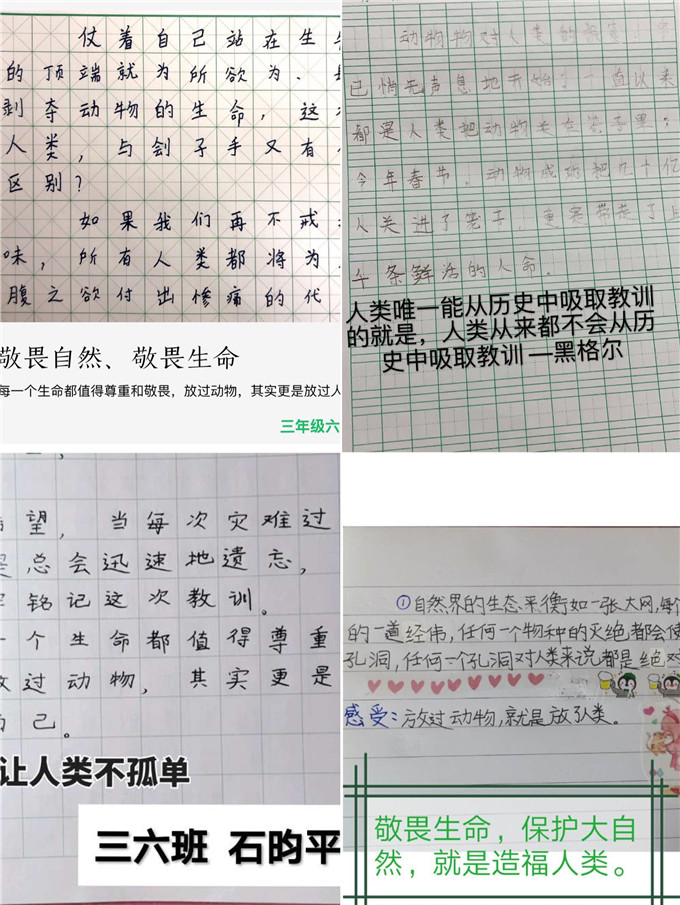 仗着自己站在生
的顶端就为所欲为、
剥夺动物的生命，这
人类，与刽子手又有
区别？
如果我们再不戒
味，所有人类都将为
腹之欲付出惨痛的代
敬畏自然、敬畏生命
每一个生命都值得尊重和敬畏，放过动物，其实更是放过人
三年级六
动物物对人类的
已悄无声息地开始了一直以来
都是人类把动物关在笼子里；
今年春节，动物成功把几十亿
人关进了笼子，更寄带走了上
千条鲜活的人命。
人类唯一能从历史中吸取教训
的就是，人类从来都不会从历
史中吸取教训 —黑格尔
望，当每次灾难过
总会迅速地遗忘，
铭记这次教训。
一个生命都值得尊重
放过动物，其实更是
自己。
让人类不孤单
三六班 石昀平
①自然界的生态平衡如一张大网，每个
的一道经伟，任何一个物种的灭绝都会使
孔洞，任何一个孔洞对人类来说都是绝对
感受：放过动物，就是放引人类。
敬畏生命，保护大自
然，就是造福人类。